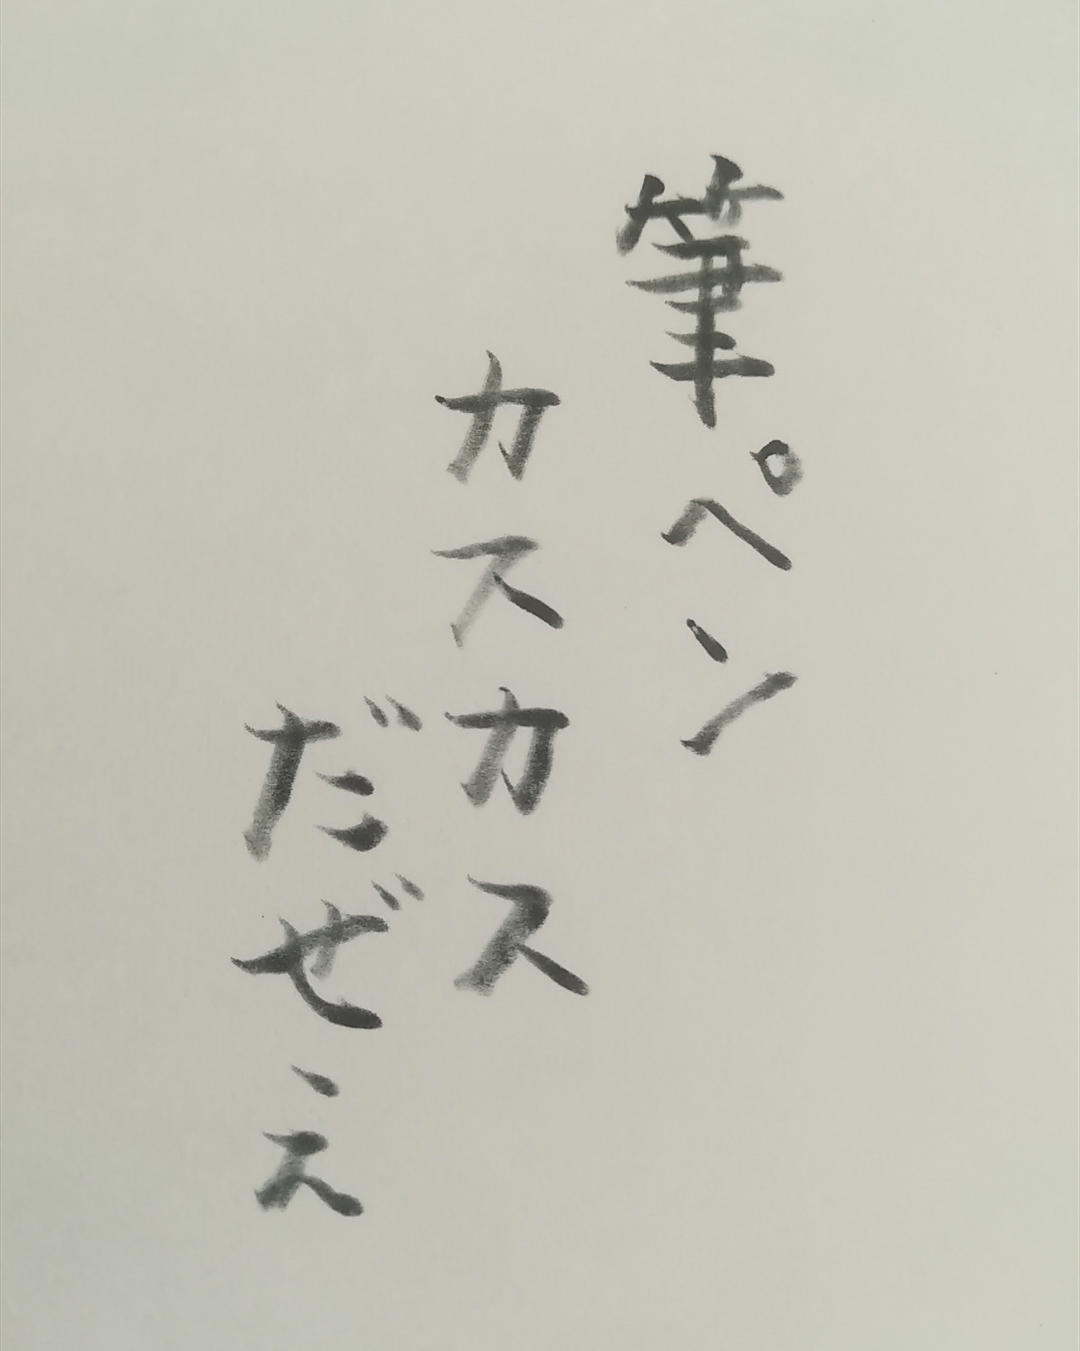 筆ペン
カスカス
だぜえ